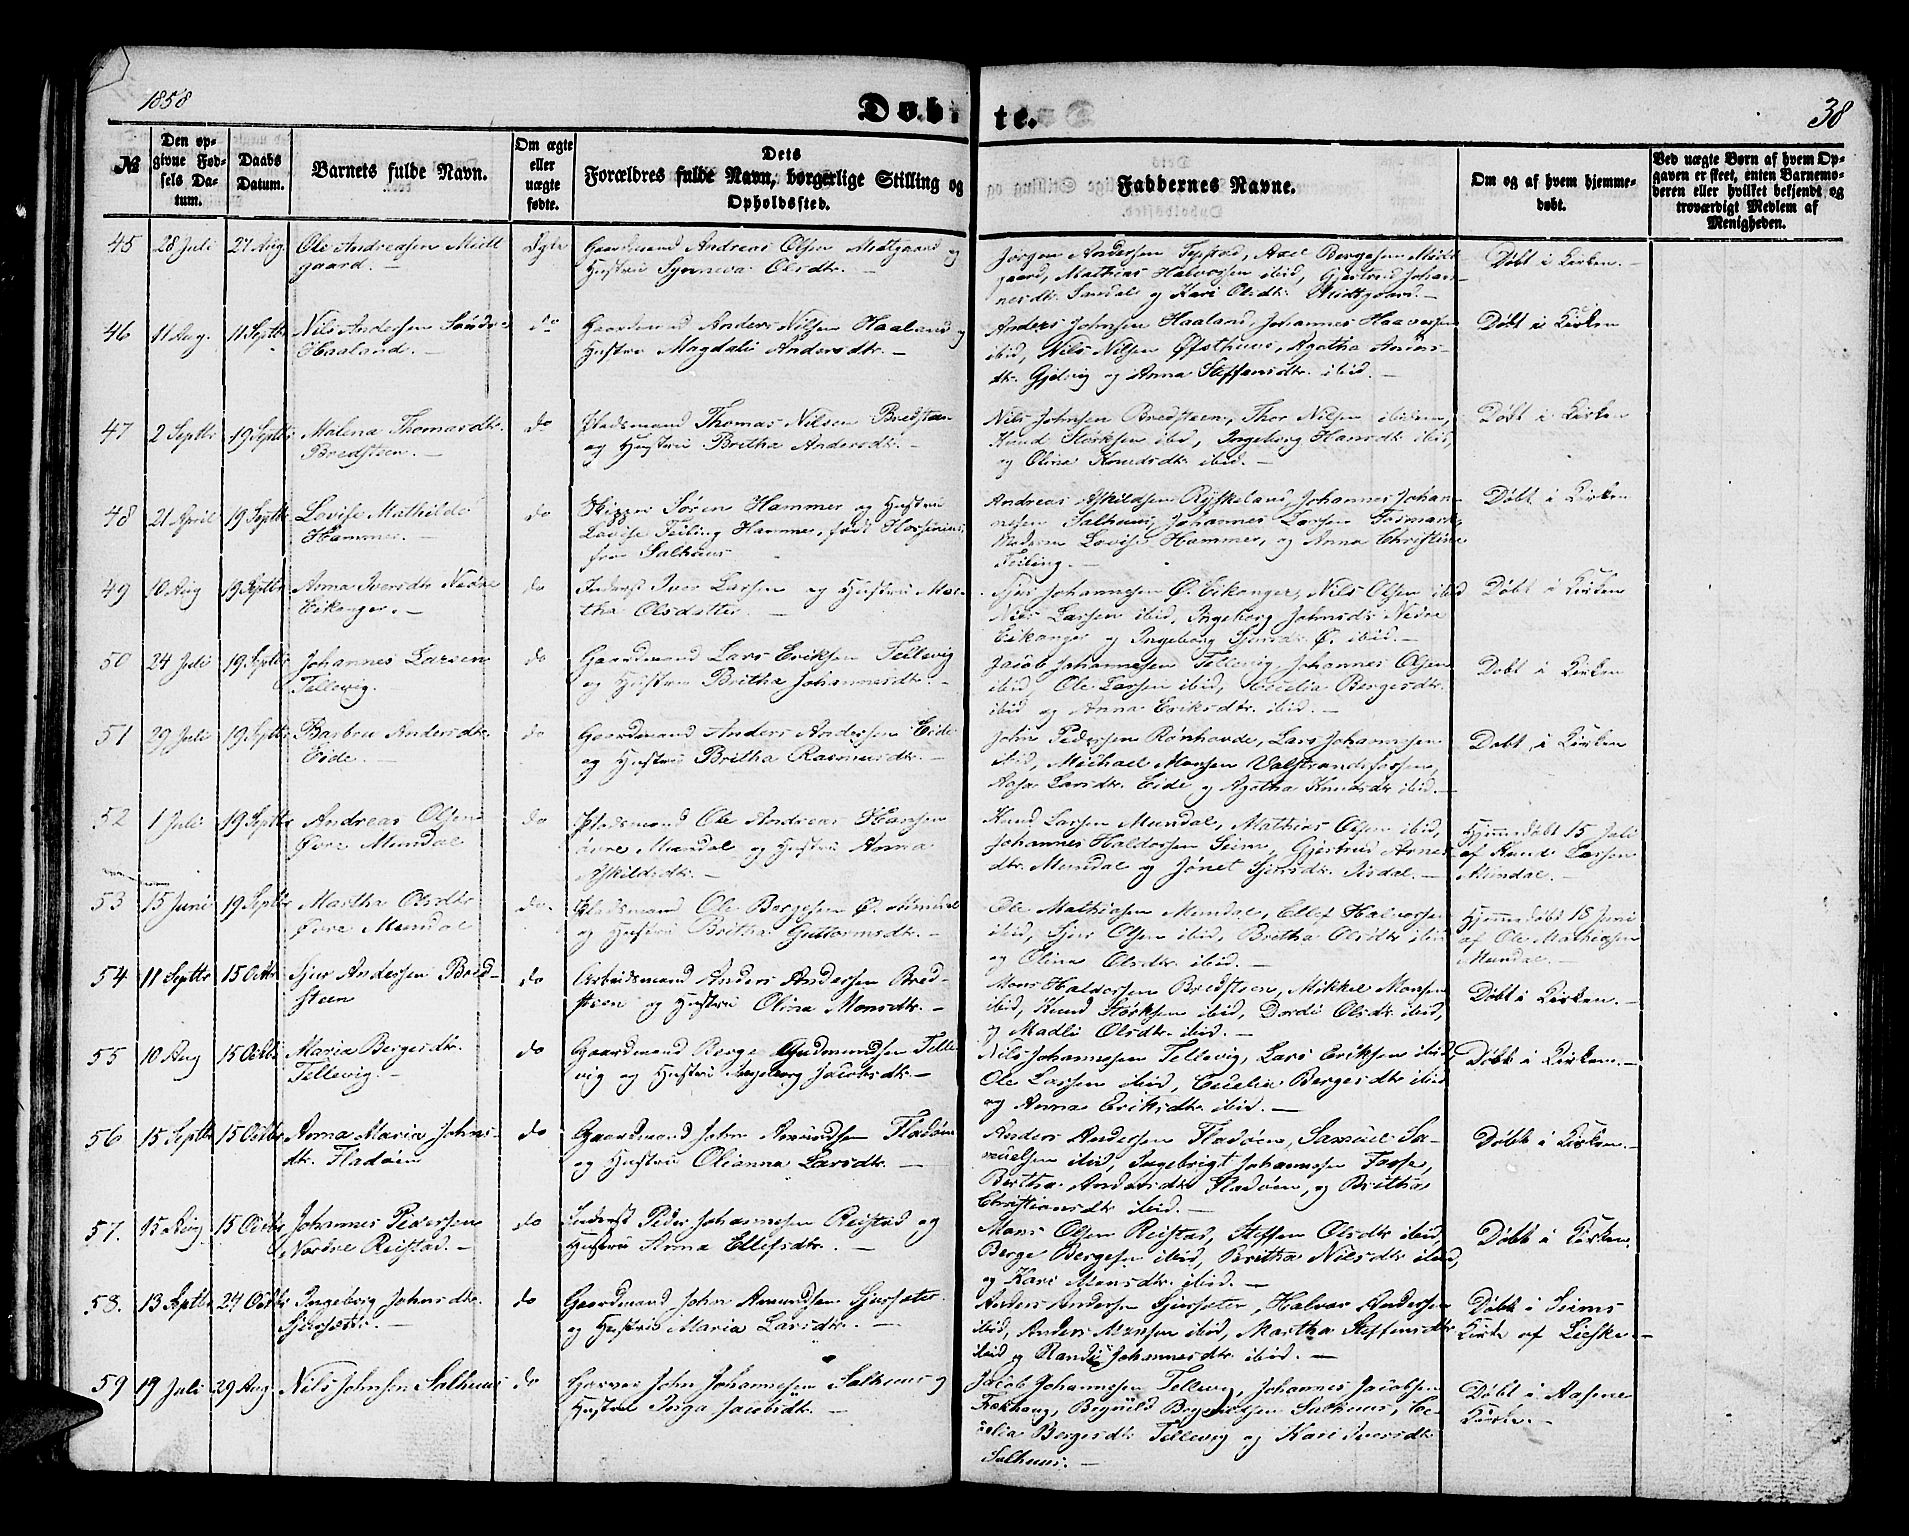 1858
Døbte.
38
№
Den op-
givne Fød-
sels Da-
tum.
Daabs
Datum.
Barnets fulde Navn.
Om ægte
eller
uægte
fødte.
Dets
Forældres fulde Navn, borgerlige Stilling og
Opholdssted.
Faddernes Navne.
Om og af hvem hjemme-
døbt.
Ved uægte Børn af hvem Op-
gaven er skeet, enten Barnemo-
deren eller hvilket bekjendt og
troværdigt Medlem af
Menigheden.
45 28 Juli 27 Aug. Ole Andreasen Midt Ægte Gaardmand Andreas Olsen og
gaard. — Hustru Synneva Olsdtr. —
Jørgen Andersen Axel Bergesen Midt
gaard, Mathias Halvorsen ibid, Gjertrud Johan-
nesdtr. Sandal og Kari Olsdtr. Midtgaard. —
Døbt i Kirken. —
46 11 Aug. 11 Septbr Nils Andersen Søndre do Gaardmand Anders Nilsen Haaland og
Haaland. — Hustru Magdali Andersdtr. —
Anders Johnsen Haaland, Johannes Haavorsen
ibid, Nils Nilsen Øfsthuus, Agatha
dtr. Gjelvig og Anna Steffensdtr. ibid. —
Døbt i Kirken
47 2 Septbr 19 Septbr Malena Thomasdtr. do Pladsmand Thomas Nilsen Bredsteen
Bredsteen. — og Hustru Britha Andersdtr. —
Nils Johnsen Bredsteen, Thor Nilsen ibidem,
Knud Størksen ibid, Ingeborg Hansdtr ibid,
og Olina Knudsdtr. ibid. —
Døbt i Kirken
48 21 April 19 Septbr Lovise Mathilde do Skipper Søren Hammer og Hustru
Hammer. — Lovise Teiling Hammer, født
fra Salhuus
Andreas Askildsen Ryskeland, Johannes Johan-
nesen Salhuus, Johannes Larsen Fosmark,
Madam Lovise Hammer, og Anna Christine
Teiling. —
Døbt i Kirken
49 10 Aug 19 Septbr Anna Iversdtr Nedre do Inderst Iver Larsen og Hustru Mar-
Eikanger. — tha Olsdatter —
Sjur Johannesen Ø. Eikanger, Nils Olsen ibid
Nils Larsen ibid, Ingeborg Johnsdtr Nedre
Eikanger og Ingeborg Sjursdtr. Ø. ibid. —
Døbt i Kirken
50 24 Juli 19 Septbr Johannes Larsen do Gaardmand Lars Eriksen Tellevig
Tellevig. — og Hustru Britha Johannesdtr. —
Jacob Johannesen Tellevig, Johannes Olsen
ibid, Ole Larsen ibid, Cecelia Bergesdtr.
ibid og Anna Eriksdtr. ibid. —
Døbt i Kirken
51 29 Juli 19 Septbr Barbru Andersdtr. do Gaardmand Anders Andersen Eide
Eide. — og Hustru Britha Rasmusdtr. —
John Pedersen Rønhovde, Lars Johannesen
ibid, Michael Monsen Valstrandsfossen,
Aase Larsdtr. Eide og Agatha Knudsdtr ibid. —
Døbt i Kirken
52 1 Juli 19 Septbr Andreas Olsen do Pladsmand Ole Andreas Hansen
Øvre Mundal øvre Mundal og Hustru Anna
Askildsdtr. —
Knud Larsen Mundal, Mathias Olsen ibid,
Johannes Haldorsen Seim, Gjertrud Arnes-
dtr. Mundal og Jønet Sjursdtr. Risdal. —
Hjemmedøbt 15 Juli
af Knud Larsen
Mundal. —
53 15 Juni 19 Septbr Martha Olsdtr do. Pladsmand Ole Bergesen Ø. Mundal
Øvre Mundal og Hustru Britha Guttormsdtr. —
Ole Mathiasen Mundal, Ellef Halvorsen
ibid, Sjur Olsen ibid, Britha Olsdtr ibid
og Olina Olsdtr. ibid. —
Hjemmedøbt 18 Juni
af Ole Mathiasen
Mundal. —
54 11 Septbr 15 Octbr. Sjur Andersen Bred- do Arbeidsmand Anders Andersen Bred-
steen steen og Hustru Olina Monsdtr. —
Mons Haldorsen Bredsteen, Mikkel Monsen
ibid, Knud Størksen ibid, Dordi Olsdtr ibid,
og Madli Olsdtr. ibid. —
Døbt i Kirken. —
55 10 Aug 15 Octbr Maria Bergesdtr. do Gaardmand Berge Gudmundsen Telle-
Tellevig. — vig og Hustru Ingeborg Jacobsdtr. —
Nils Johannesen Tellevig, Lars Eriksen ibid,
Ole Larsen ibid, Cecelia Bergesdtr ibid
og Anna Eriksdtr. ibid. —
Døbt i Kirken. —
56 15 Septbr 15 Octbr Anna Maria Johns- do Gaardmand John Amundsen Fladøen
dtr. Fladøen og Hustru Olianna Larsdtr. —
Anders Andersen Fladøen, Samuel Sa-
muelsen ibid, Ingebrigt Johannesen Fosse,
Bertha Andersdtr Fladøen, og Britha
Christiansdtr ibid. —
Døbt i Kirken. —
57. 15 Aug 15 Octbr Johannes Pedersen do Inderst Peder Johannesen Reistad og
Nordre Reistad. — Hustru Anna Ellefsdtr. —
Mons Olsen Reistad, Steffen Olsdtr ibid,
Berge Bergesen ibid, Britha Nilsdtr ibid,
og Kari Monsdtr. ibid. —
Døbt i Kirken.
58. 13 Septbr 24 Octbr Ingeborg Johnsdtr. do Gaardmand John Amundsen Sjursæter
Sjursæter. — og Hustru Maria Larsdtr. —
Anders Andersen Sjursæter, Halvor Andersen
ibid, Anders Monsen ibid, Martha Steffensdtr
ibid og Randi Johannesdtr. ibid. —
Døbt i Seims
Kirke af —
59 19 Juli 29 Aug. Nils Johnsen Salhuus do Garver John Johannesen Salhuus og
Hustru Inga Jacobsdtr. —
Jacob Johannesen Tellevig, Johannes Jacobsen
Salhuus, Ce-
celia Bergesdtr. Tellevig og Kari Iversdtr
Salhuus. —
Døbt i Aasene
Kirke. —